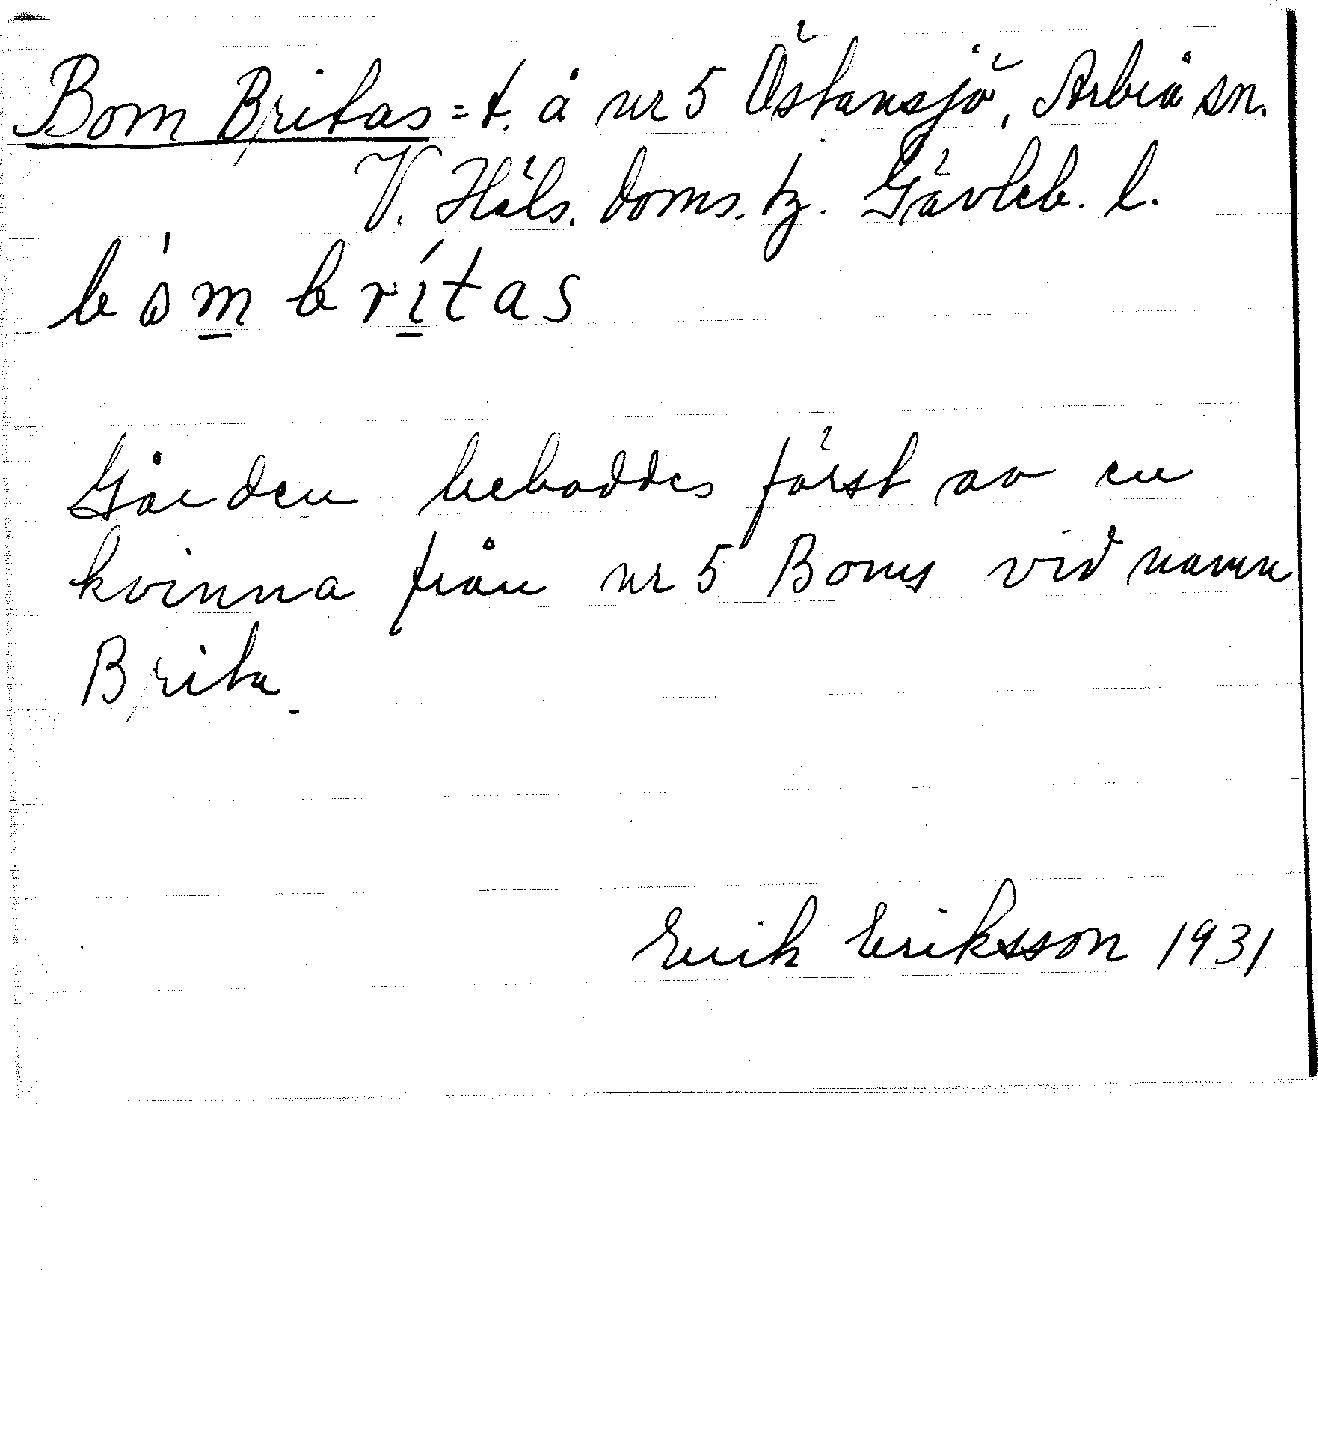 Bom Britas = t. å nr 5 Östansjö, Arbrå sn.
V. Häls. doms. tj. Gävleb. l.
bòmbrítas
Gården beboddes först av en
kvinna från nr 5 Boms vid namn
Brita.
Erik Eriksson 1931